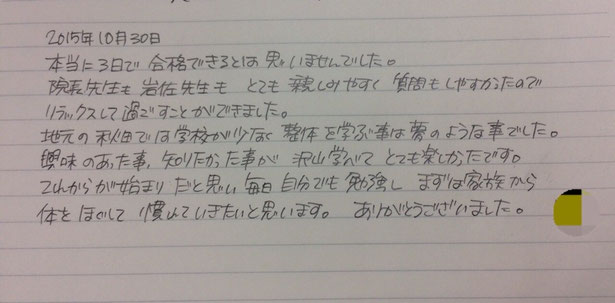 2015年10月30日
本当に3日で合格できるとは思いませんでした。
院長先生も岩佐先生もとても親しみやすく質問もしやすかったので
リラックスして過ごすことができました。
地元の秋田では学校が少なく整体を学ぶ事は夢のような事でした。
興味のあった事、知りたかった事が沢山学べてとても楽しかったです。
これからが始まりだと思い毎日自分でも勉強しまずは家族から
体をほぐして慣れていきたいと思います。ありがとうございました。